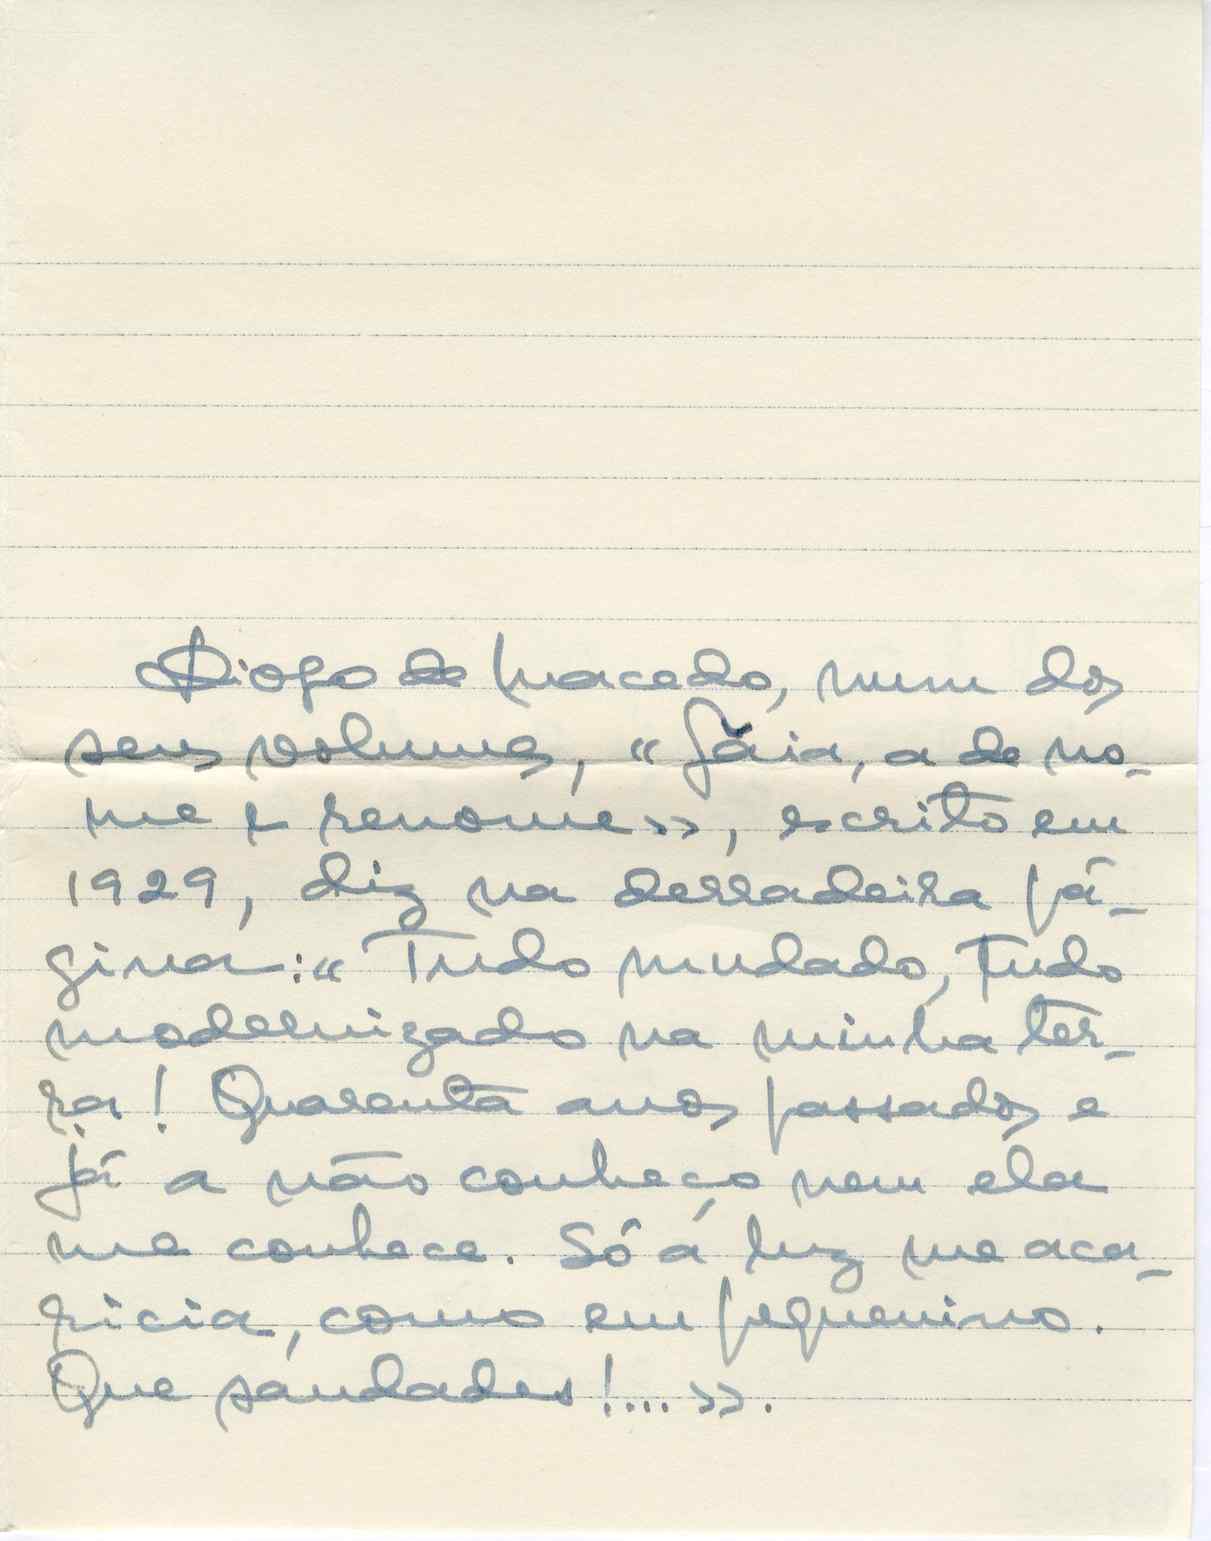 Diogo de Macedo, num dos
seus volumes, "Găia, a de no-
me e renome", escrito em
1929, diz na derradeira pá-
gina: "Tudo mudado, tudo
modernizado na minha ter-
ra! Quarenta anos passados e
já a não conheço nem ela
me conhece. Só a luz me aca-
ricia, como em pequenino.
Que saudades!....".